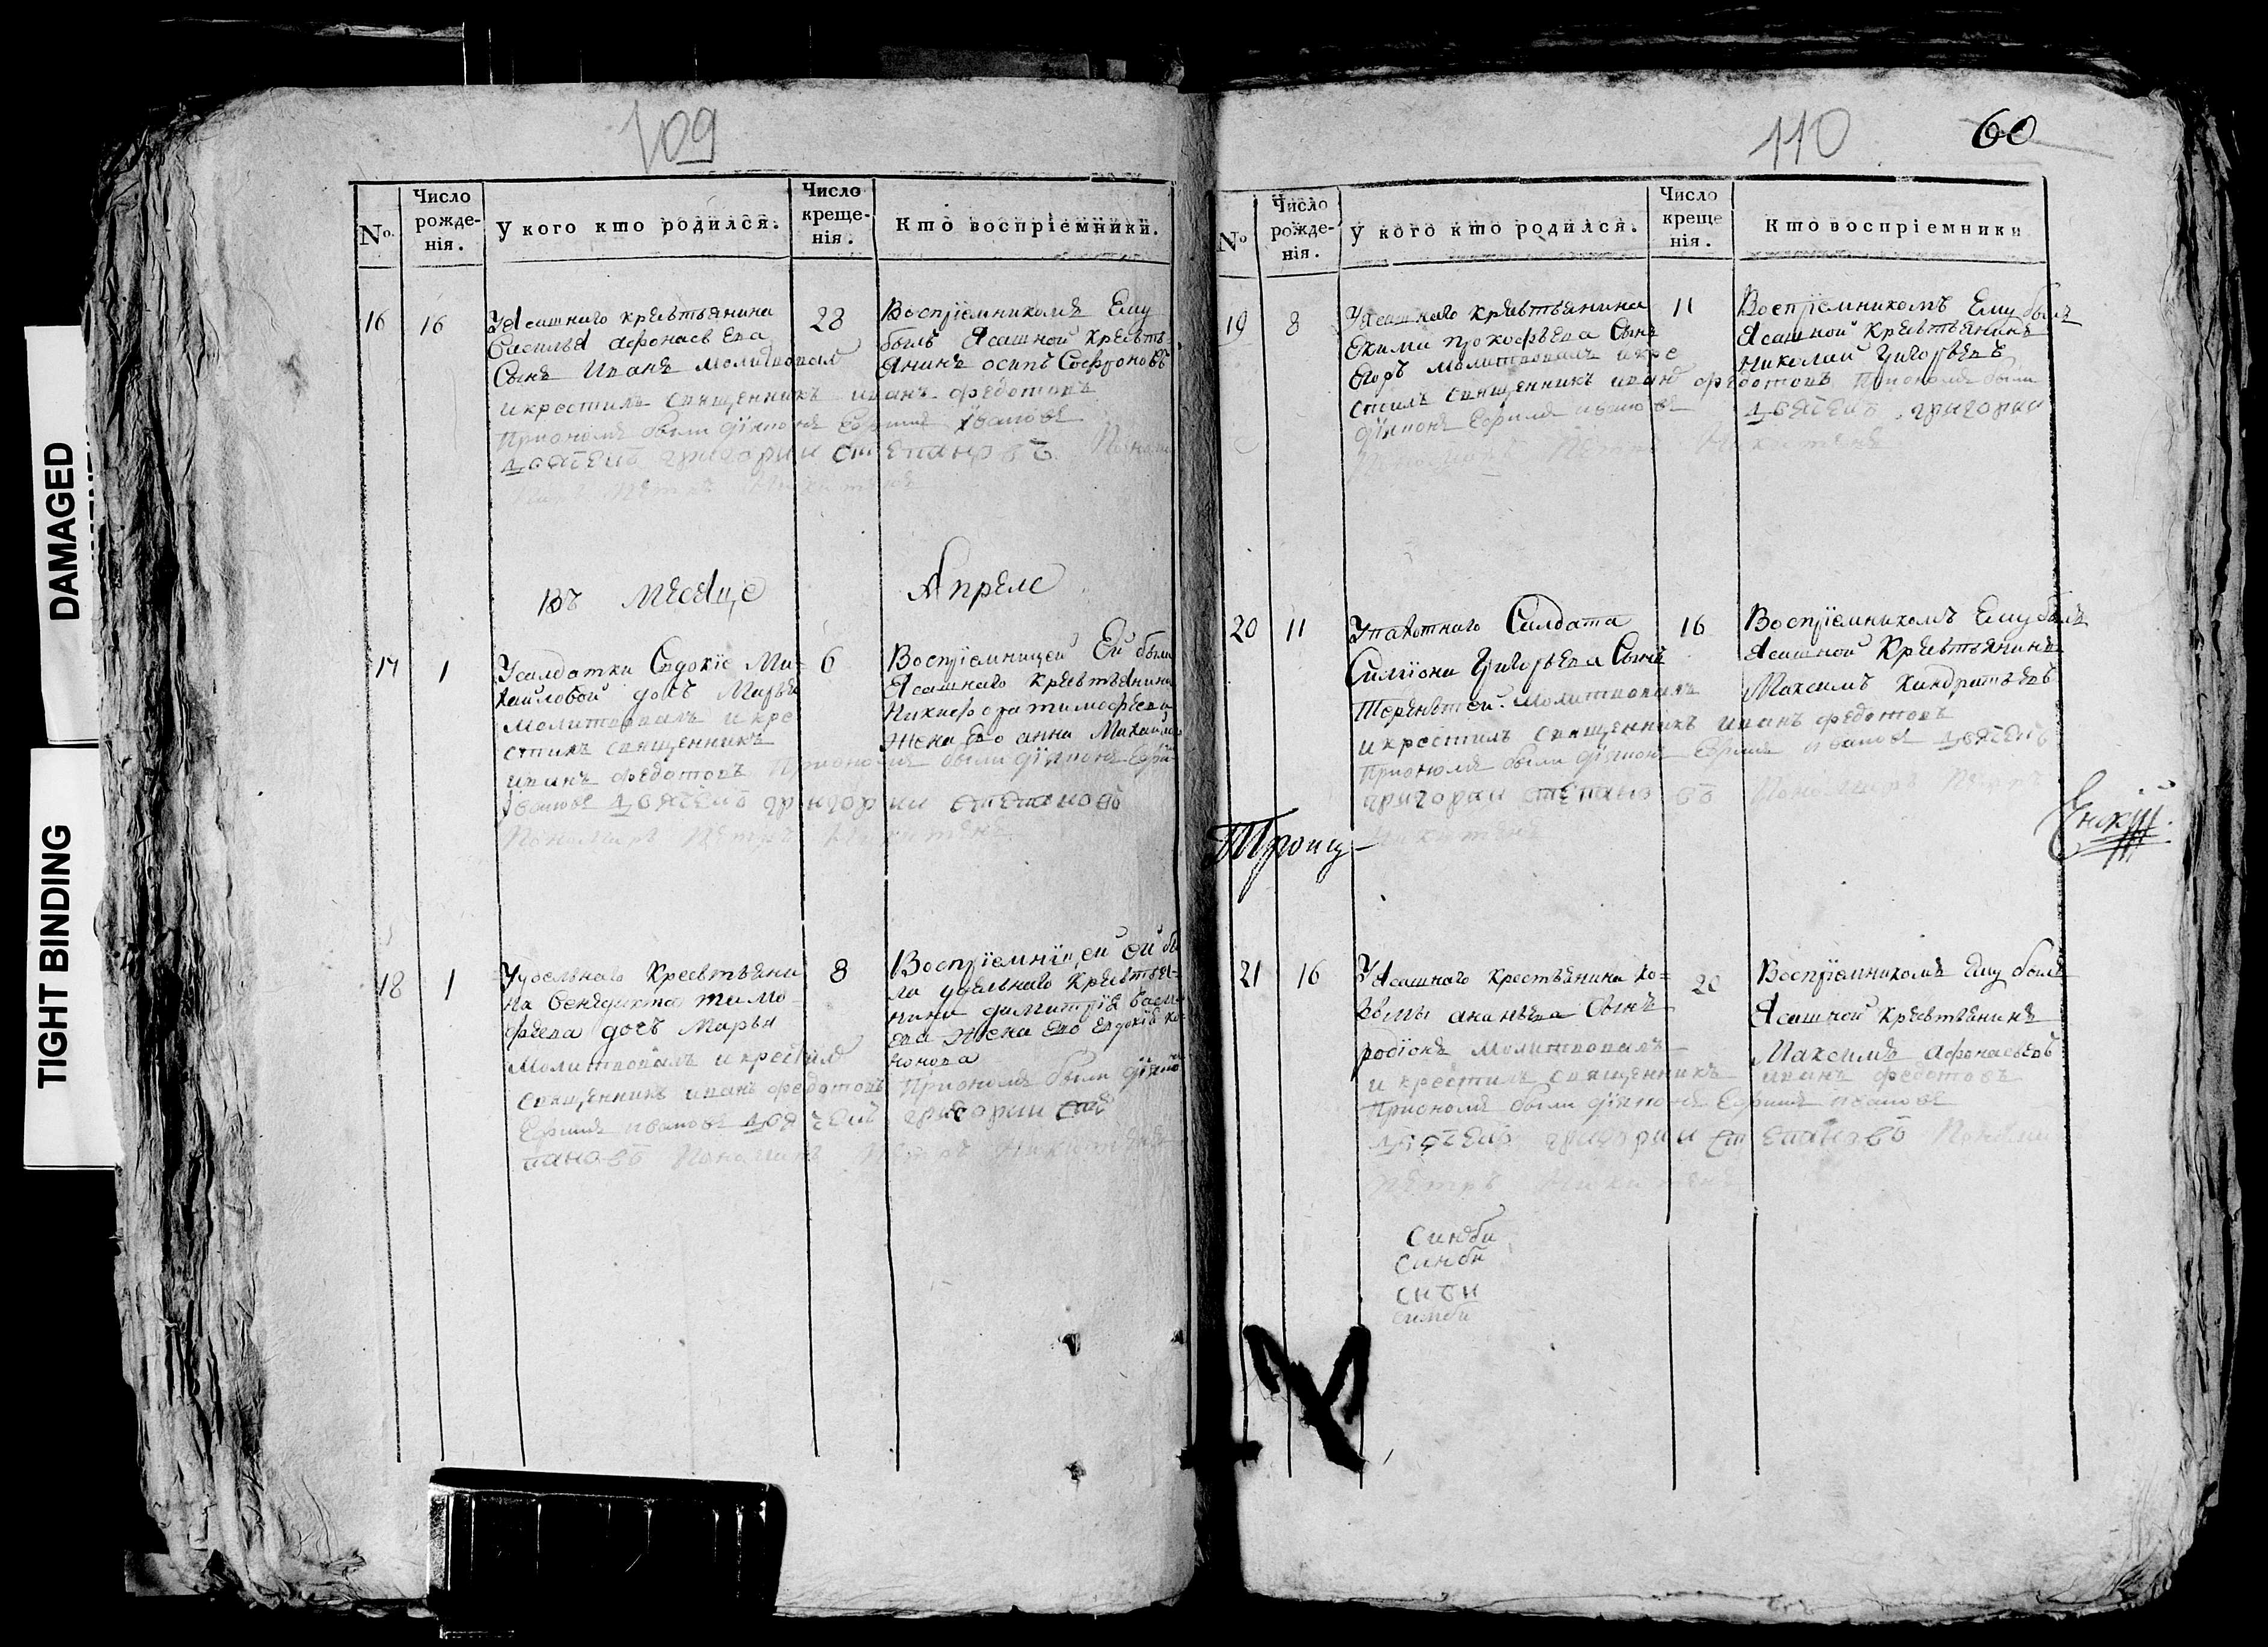 DAMAGED
TIGHT BINDING
109
No.
Число рожде- нія.
У кого кто родился.
Число креще- нія.
Кто воспріемники.
16 16 28
Уясашнаго крестьянина
василья афонасьева
Сынъ Иванъ молитвовалъ
икрестилъ священникъ иванъ федотовъ
Приономъ были діяконъ Ефимъ ивановъ
дьячекъ григории степановъ Поно
Петръ Никитинъ
Воспріемникомъ Ему
былъ Ясашной Кресть
янинъ осипъ Софроновъ
Въ месяце Апреле
17 1 6
Усалдатки Евдокіе Ми=
хайловой дочь Марья
молитвовалъ икре
стилъ священникъ
иванъ федотовъ Приономъ были діяконъ Ефи
ивановъ дьячекъ григории степановъ
Пономарь Петръ Никитинъ
Воспріемницей Ей была
Ясашнаго крестьянина
Никифора тимофеева
жена Ево анна Михайло
18 1 8
Уудельнаго Крестьяни
на бенедикта тимо
феева дочь Марья
Молитвовалъ икрестилъ
священникъ иванъ федотовъ Приономъ были діяко
Ефимъ ивановъ дьячекъ григории сте
пановъ Пономарь Петръ Никитинъ
Воспріемницей ей бы
ла удельнаго Крестья-
нина димитрія васил
ева жена ево евдокія ко
нонова
110 60
No
Число рожде- нія.
У кого кто родился.
Число креще нія.
Кто воспріемники
19 8 11
Уясашнаго крестьянина
Екима прокофьева Сынъ
Егоръ молитвовалъ икре
стилъ священникъ иванъ федотовъ Приономъ были
діяконъ Ефимъ ивановъ дьячекъ григории
Пономарь Петръ Никитинъ
Воспріемникомъ Ему былъ
Ясашной Крестьянинъ
Николай Григорьевъ
20 11 16
Упахотнаго Салдата
Симіона Григорьева Сынъ
Терентей Молитвовалъ
икрестилъ священникъ иванъ федотовъ
Приономъ были діяконъ Ефимъ ивановъ дьячекъ
григории степановъ Пономарь Петръ
Никитинъ
Воспріемникомъ Ему былъ
Ясашной Крестьянинъ
Максимъ Кандратьевъ
Троиц-
21 16 20
Уясашнаго крестьянина ко=
зьмы ананьева Сынъ
родіонъ Молитвовалъ
и крестилъ священникъ иванъ федотовъ
Приономъ были діяконъ Ефимъ ивановъ
дьячекъ григории степановъ Поном
Петръ Никитинъ
Воспріемникомъ Ему былъ
Ясашной крестьянинъ
Максимъ афонасьевъ